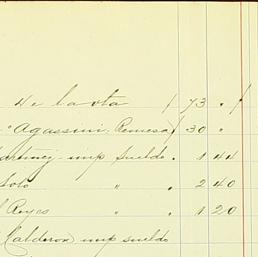 de la vta / 73 . /
" Agassini, Remesa / 30 "
Martinez imp sueldo . 1 44
Soto " . 2 40
Reyes " . 1 20
Calderon imp sueldo